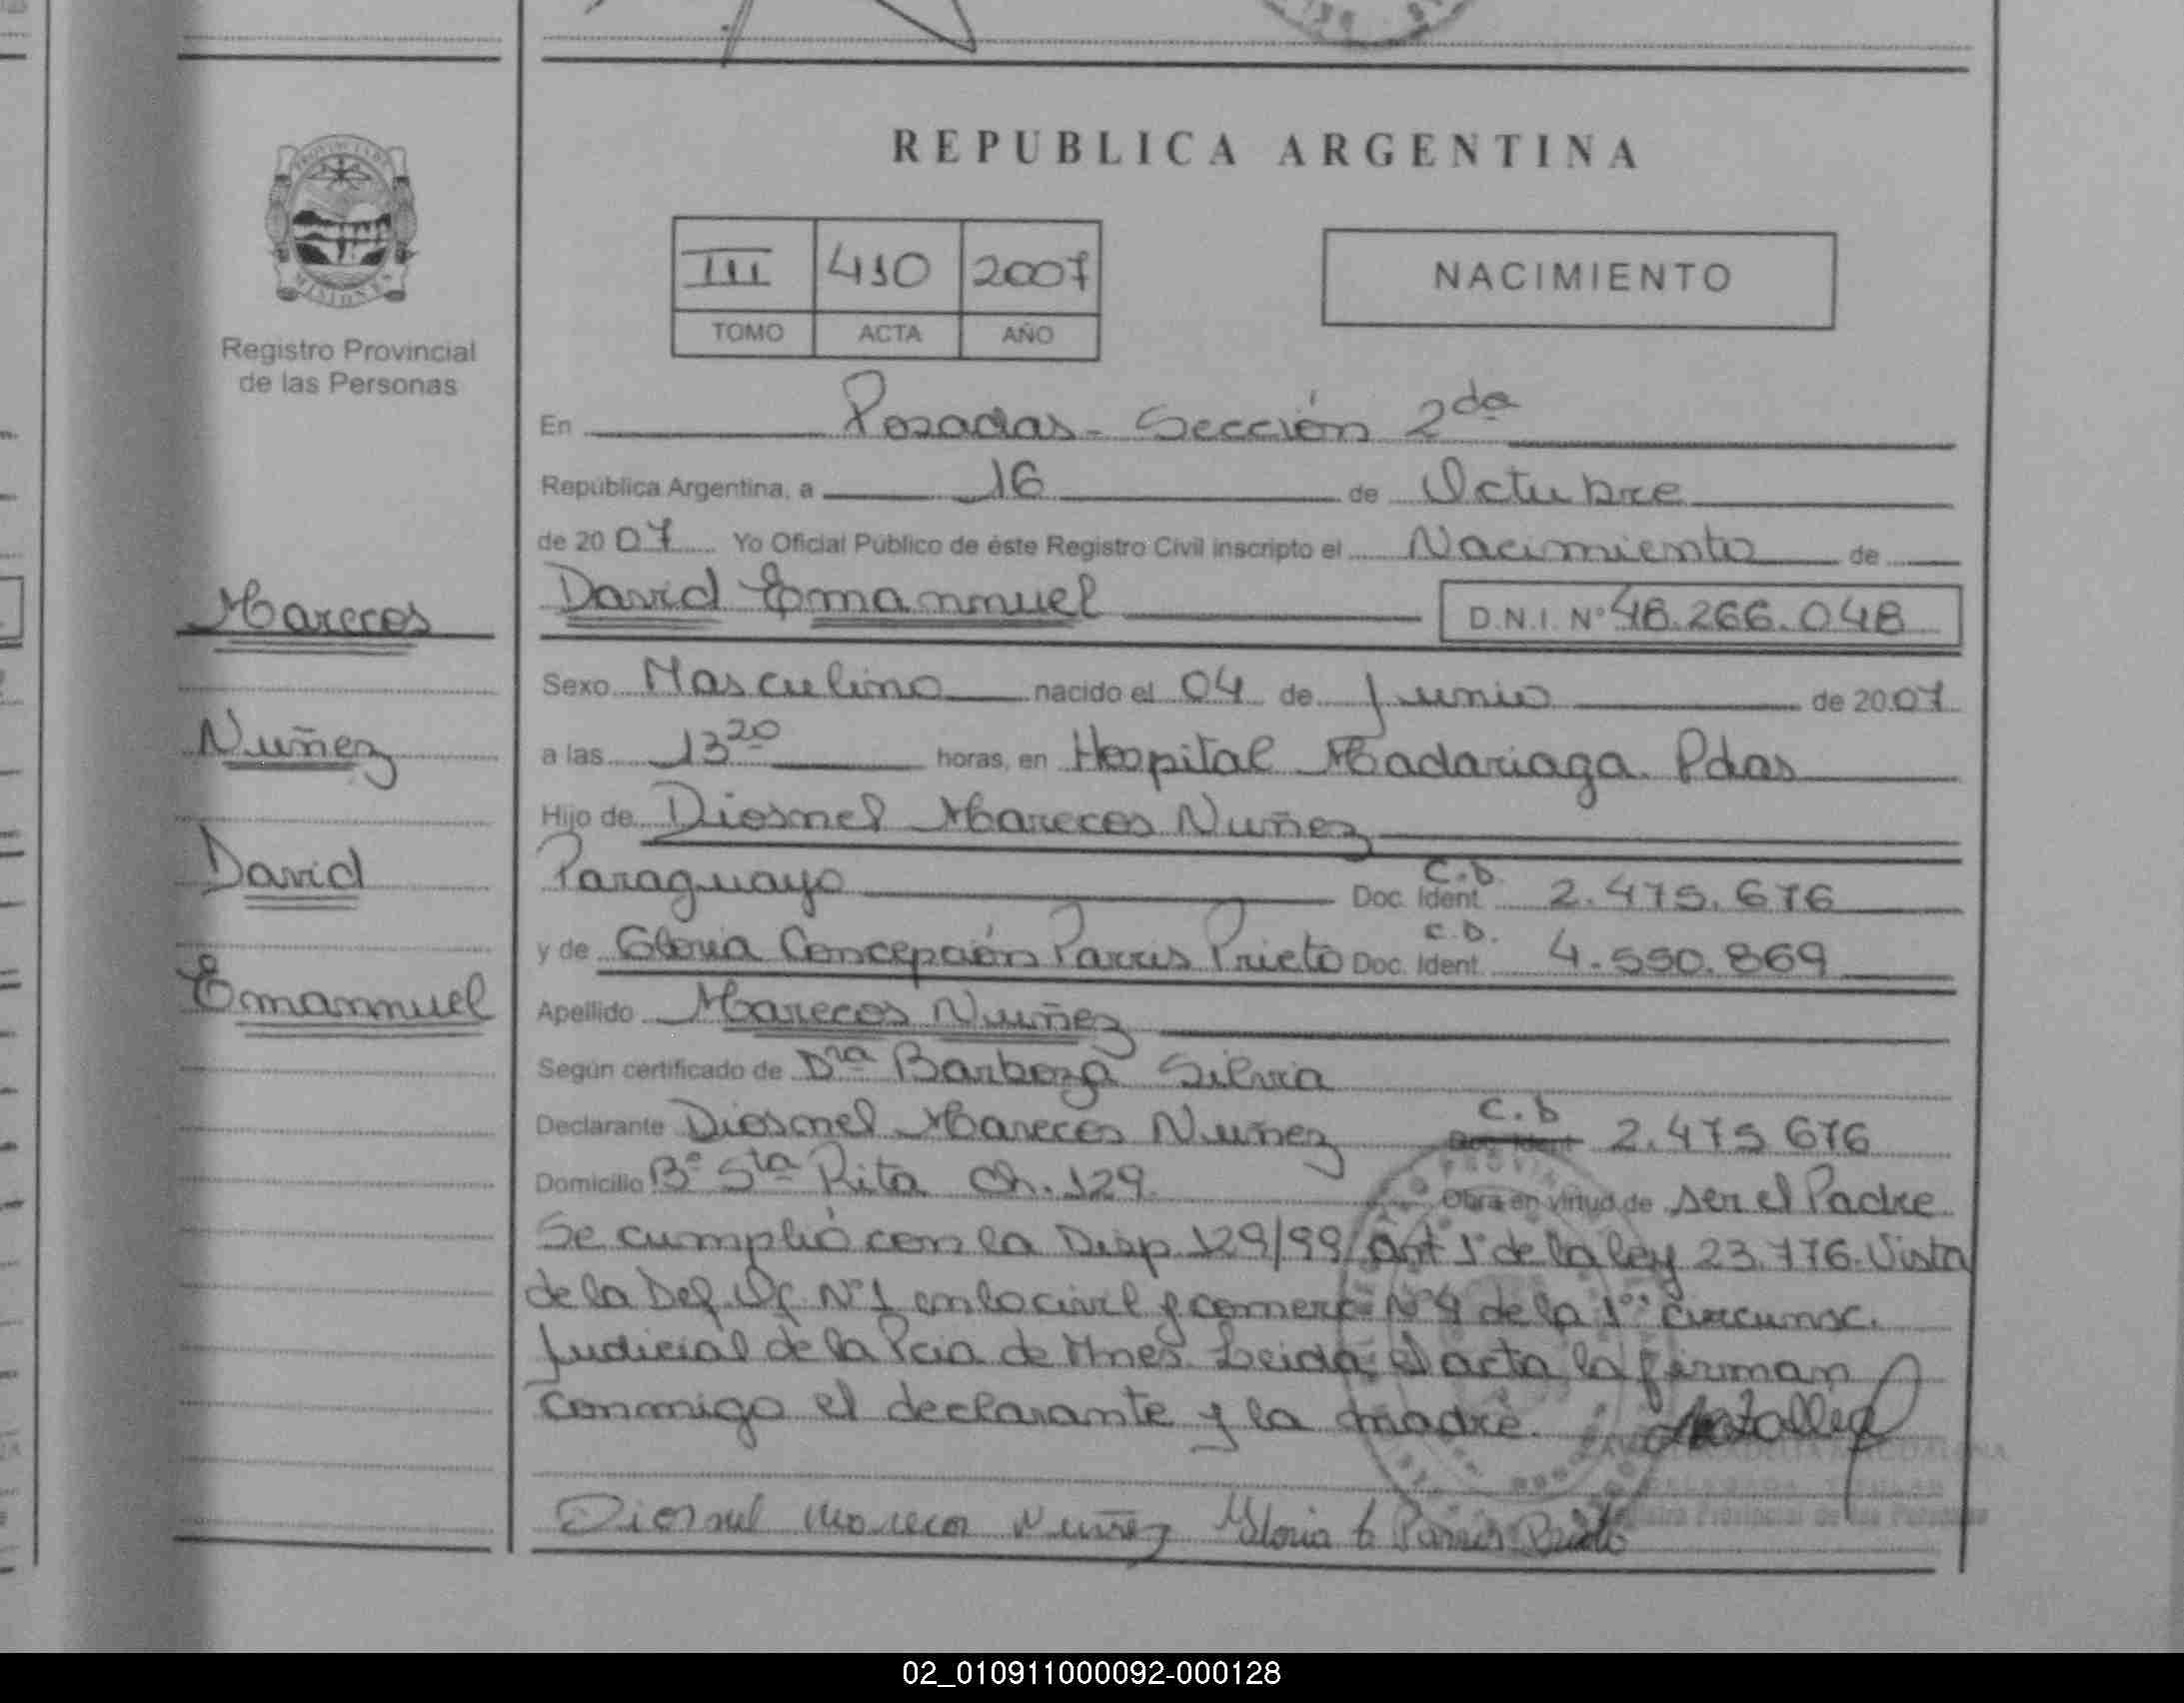 REPUBLICA ARGENTINA
PROVINCIA DE
MISIONES
Registro Provincial
de las Personas
III 410 2007
TOMO ACTA AÑO
NACIMIENTO
En Posadas - Sección 2da
República Argentina, a 16 de Octubre
de 2007 Yo Oficial Público de éste Registro Civil inscripto el Nacimiento de
Marecos
David Emanmuel D.N.I. Nº 48.266.048
Sexo Masculino nacido el 04 de Junio de 2007
Nuñez
a las 13 20 horas, en Hospital Madariaga Pdas
Hijo de Diosnel Marecos Nuñez
David
Paraguayo Doc. Ident. C.D. 2.475.676
y de Gloria Concepción Parris Prieto Doc. Ident. C.D. 4.550.869
Emanmuel
Apellido Marecos Nuñez
Según certificado de Dra Barboza Silvia
Declarante Diosnel Marecos Nuñez C.D 2.475 676
Domicilio Bº Sta Rita Ch. 129 Obra en virtud de ser el Padre
Se cumplió con la Disp 129/99 Art 1º de la ley 23.776. Vista
de la Def. Of. Nº1 en lo civil y comerc. Nº4 de la 1º circunsc.
Judicial de la Pcia de Mnes. Leida el acta la firman
conmigo el declarante y la madre.
Diosnel Marecos Nuñez Gloria C Parris Prieto
Registro Provincial de las Personas
02_010911000092-000128